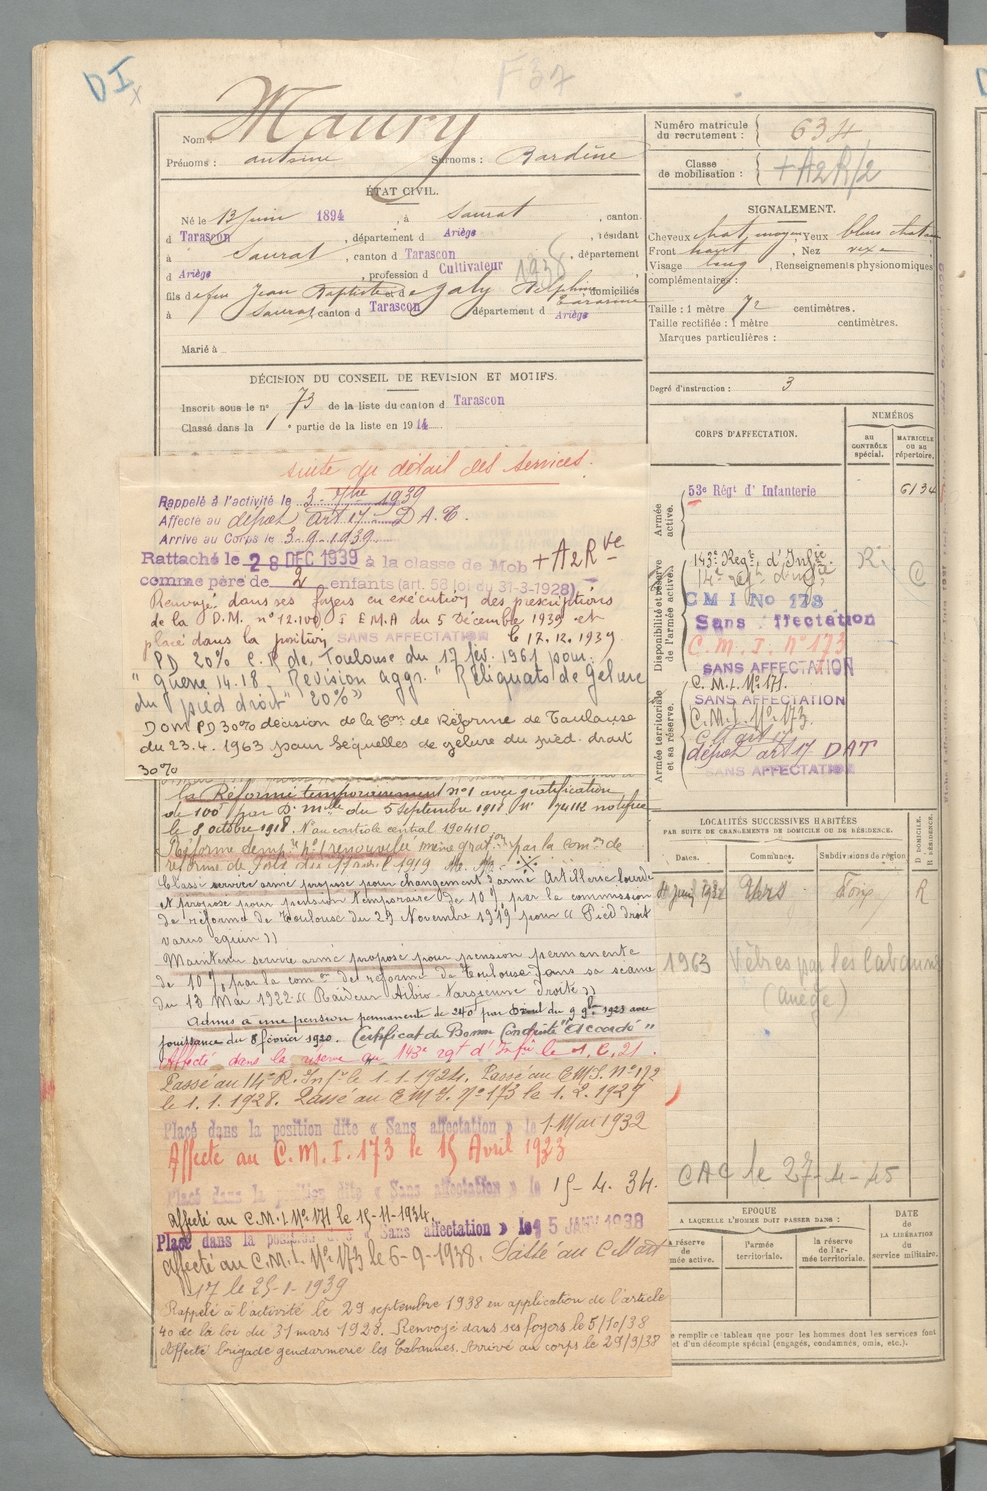 DI
x
F 37
Nom : Maury
Prénoms : antoine Surnoms : Bardine
ÉTAT CIVIL.
Né le 13 Juin 1894, à Saurat, canton
d Tarascon, département d Ariège, résidant
à Saurat, canton d Tarascon, département
d Ariège, profession d Cultivateur
1938
fils de feu Jean Baptiste et de Galy Delphine domiciliés
à Saurat canton d Tarascon département d Ariège
Marié à
DÉCISION DU CONSEIL DE REVISION ET MOTIFS.
Inscrit sous le n° 73 de la liste du canton d Tarascon
Classé dans la 1e partie de la liste en 1914.
suite du détail des services.
Rappelé à l'activité le 3 - 7bre 1939
Affecté au dépot art 17 DAT.
Arrivé au Corps le 3-9-1939
Rattaché le 28 DEC 1939 à la classe de Mob +A2Rve
comme père de 2 enfants (art. 58 loi du 31-3-1928)
Renvoyé dans ses foyers en exécution des prescriptions
de la D.M. n° 12.100 I E M.A du 5 Décembre 1939 et
placé dans la position SANS AFFECTATION le 17.12.1939.
PD 20% C.R de Toulouse du 17 fév. 1961 pour
"Guerre 14.18. Revision aggr. "Reliquats de Gelure
du pied droit" 20%"
Dom PD 30% décision de la Con de Réforme de Toulouse
du 23.4.1963 pour Séquelles de gelure du pied droit
30%
la Réforme temporairement n°1 avec gratification
de 100f par Dn mlle du 5 septembre 1918 N° 74112 notifiée
le 8 octobre 1918. N° au contrôle central 190410
Réforme temp. n°1 renouvelée même gration par la comon de
réforme de Foix du avril 1919
Classé service armé proposé pour changement d'arme Artillerie lourde
et proposé pour pension temporaire de 10% par la commission
de réforme de Toulouse du 29 Novembre 1919 pour « Pied droit
varus equin »
Maintenu service armé proposé pour pension permanente
de 10% par la comon de réforme de Toulouse dans sa séance
du 13 Mai 1922 « Raideur tibio-tarsienne droite »
Admis à une pension permanente de 240f par Décret du 9 9bre 1923 avec
jouissance du 8 février 1920. Certificat de Bonne Conduite "Accordé"
Affecté dans la réserve au 143e rgt d'Infie le 1.6.21.
Passé au 14e R. Infie le 1.1.1924. Passé au C.M.I. N° 172
le 1.1.1928. Passé au C M I. N° 173 le 1.2.1929
Placé dans la position dite « Sans affectation » le 1 Mai 1932
Affecté au C.M.I. 173 le 15 Avril 1933
Placé dans la position dite « Sans affectation » le 15-4.34.
affecté au C.M.I N° 171 le 15-11-1934.
Placé dans la position dite « Sans affectation » le 15 JANV 1938
affecté au C.M.I. N° 173 le 6-9-1938. Passé au C Mart
17 le 25-1-1939
Rappelé à l'activité le 29 septembre 1938 en application de l'article
40 de la loi du 31 mars 1928. Renvoyé dans ses foyers le 5/10/38
Affecté brigade gendarmerie les Cabannes. Arrivé au corps le 29/9/38
Numéro matricule du recrutement : 634
Classe de mobilisation : +A2R/2
SIGNALEMENT.
Cheveux chat. moyen, Yeux bleus chatain
Front haut, Nez vexe
Visage long, Renseignements physionomiques
complémentaires :
Taille : 1 mètre 72 centimètres.
Taille rectifiée : 1 mètre centimètres.
Marques particulières :
Degré d'instruction : 3
CORPS D'AFFECTATION.
NUMÉROS
AU CONTRÔLE spécial.
MATRICULE OU AU répertoire.
Armée active.
53e Régt d'Infanterie 6134
Disponibilité et réserve de l'armée active.
143e Regt d'Infie R. C
14e Rgt d'Infie
C M I No 128
Sans affectation
C.M.I. N° 173
SANS AFFECTATION
Armée territoriale et sa réserve.
C.M.I. N° 171.
SANS AFFECTATION
C.M.I. N° 173.
C Mart 17
dépot art 17 DAT
SANS AFFECTATION
LOCALITÉS SUCCESSIVES HABITÉES
PAR SUITE DE CHANGEMENTS DE DOMICILE OU DE RÉSIDENCE.
Dates. Communes. Subdivisions de région
D DOMICILE. R RÉSIDENCE.
Juin 1932 Foix R
1963 Vèbres par les Cabannes
(Ariège)
CAC le 27-4-45
EPOQUE
A LAQUELLE L'HOMME DOIT PASSER DANS :
DATE de LA LIBÉRATION du service militaire.
réserve de mée active.
l'armée territoriale.
la réserve de l'armée territoriale.
e remplir ce tableau que pour les hommes dont les services font
et d'un décompte spécial (engagés, condamnés, omis, etc.).